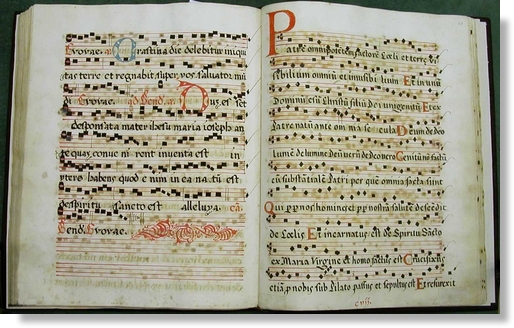 Evovae. Crastina die delebitur iniqui
tas terre et regnabit super vos salvator mũ
di Evovae. ad Bend. an. Dũs. esset
desponsata mater ihesu maria ioseph an
te quas conveniront inventa est in
vtero habens quod enim in ea natũ est
despiritu sancto est alleluya. ea
Bend. Evovae.
Patrẽ omnipotẽtem factorẽ Cœli et terre vi
sibiliũm omniũ et invisibilium Et in vnũ
Dominũ iesũ Christũ filiũ Dei vnigenitũ Et ex
Patre natũ ante omnia secula Deum de deo
lumẽ de lumine deũ verũ de deo vero Genitũ nõ factũ
cõn substãtialẽ Patri per quẽ omnia facta sunt
Qui ꝓp nos homines et ꝓp nostrã salutẽ descẽdit
de Cœlis Et incarnatus est de Spiritu Sãcto
ex Maria Virgine et homo factus est Crucifixus
etiã ꝓ nobis sub Pilato passus et sepultus est Et resurrexit